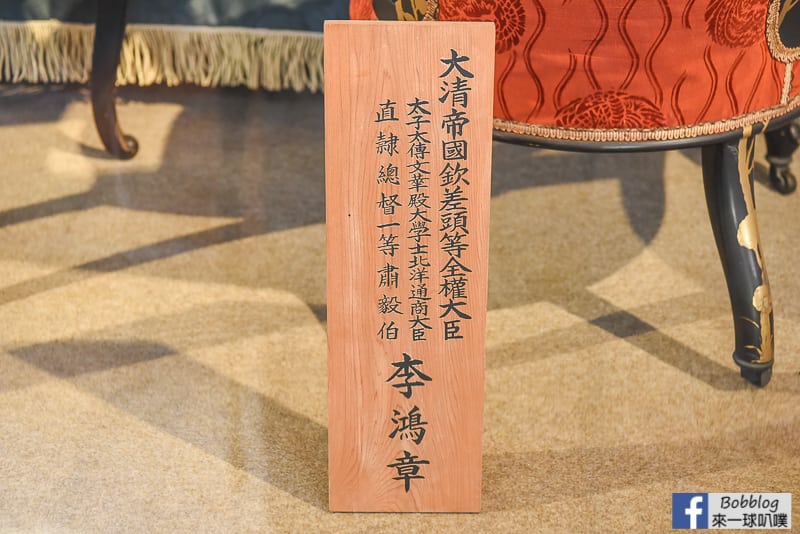 大清帝國欽差頭等全權大臣
太子太傅文華殿大學士北洋通商大臣
直隷總督一等肅毅伯
李鴻章
f Bobblog
來一球叭噗